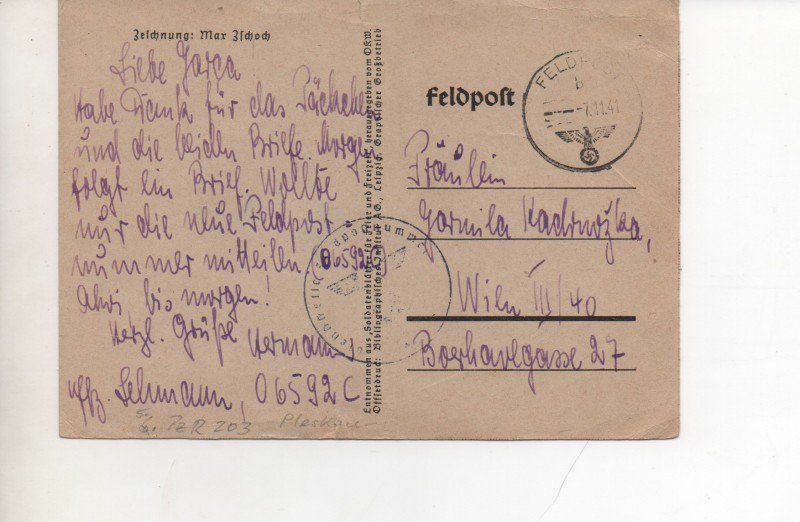 Zeichnung: Max Zschoch
Liebe Jarca
Habe Dank für das Päckchen
und die beiden Briefe. Morgen
folgt ein Brief. Wollte
nur die neue Feldpost-
nummer mitteilen.
Ahoi, bis morgen!
Herzl. Grüße Hermann
Uffz. Lehmann, 06592 C
Pz R 203 Pleskau
Entnommen aus „Soldatenblätter für Feier und Freizeit", herausgegeben vom OKW.
Offsetdruck: Bibliographisches Institut AG., Leipzig, Graphischer Großbetrieb
06592
Feldpost
FELDPOST
b
-7.11.41
Fräulein
Jarmila
Wien III/40
Boerhavegasse 27